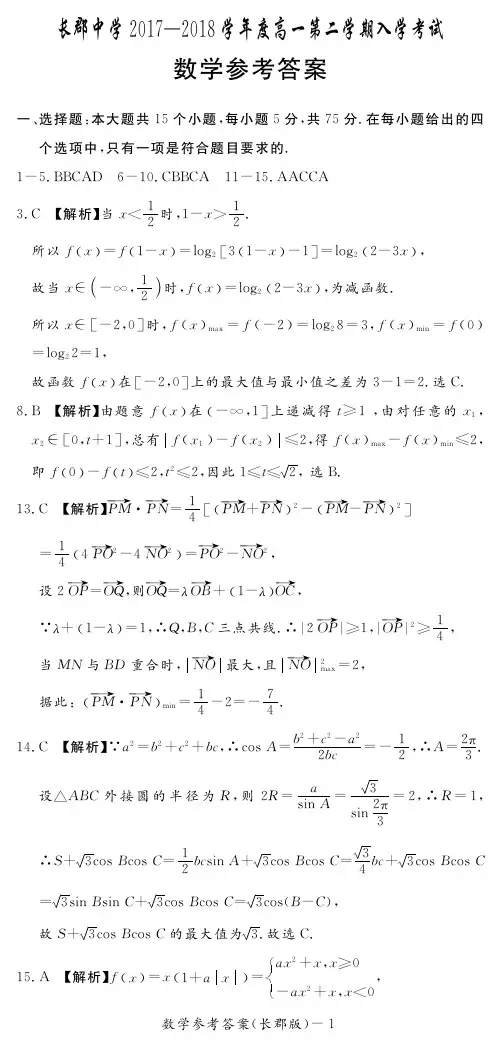 长郡中学 2017—2018 学年度高一第二学期入学考试
数学参考答案
一、选择题:本大题共 15 个小题,每小题 5 分,共 75 分.在每小题给出的四
个选项中,只有一项是符合题目要求的.
1-5. BBCAD  6-10. CBBCA  11-15. AACCA
3. C 【解析】当 x<1/2 时,1-x>1/2.
所以 f(x)=f(1-x)=log₂[3(1-x)-1]=log₂(2-3x),
故当 x∈(-∞,1/2)时,f(x)=log₂(2-3x),为减函数.
所以 x∈[-2,0]时,f(x)max=f(-2)=log₂8=3,f(x)min=f(0)
=log₂2=1,
故函数 f(x)在[-2,0]上的最大值与最小值之差为 3-1=2.选 C.
8. B 【解析】由题意 f(x)在(-∞,1]上递减得 t≥1 ,由对任意的 x₁,
x₂∈[0,t+1],总有|f(x₁)-f(x₂)|≤2,得 f(x)max-f(x)min≤2,
即 f(0)-f(t)≤2,t²≤2,因此 1≤t≤√2, 选 B.
13. C 【解析】PM→·PN→=1/4[(PM→+PN→)²-(PM→-PN→)²]
=1/4(4PO→²-4NO→²)=PO→²-NO→²,
设 2OP→=OQ→,则OQ→=λOB→+(1-λ)OC→,
∵λ+(1-λ)=1,∴Q,B,C 三点共线.∴|2OP→|≥1,|OP→|²≥1/4,
当 MN 与 BD 重合时,|NO→|最大,且|NO→|²max=2,
据此:(PM→·PN→)min=1/4-2=-7/4.
14. C 【解析】∵a²=b²+c²+bc,∴cos A=(b²+c²-a²)/2bc=-1/2,∴A=2π/3.
设△ABC 外接圆的半径为 R,则 2R=a/sin A=√3/sin(2π/3)=2,∴R=1,
∴S+√3cos Bcos C=1/2bcsin A+√3cos Bcos C=√3/4bc+√3cos Bcos C
=√3sin Bsin C+√3cos Bcos C=√3cos(B-C),
故 S+√3cos Bcos C 的最大值为√3.故选 C.
15. A 【解析】f(x)=x(1+a|x|)={ax²+x,x≥0
-ax²+x,x<0,
数学参考答案(长郡版)-1